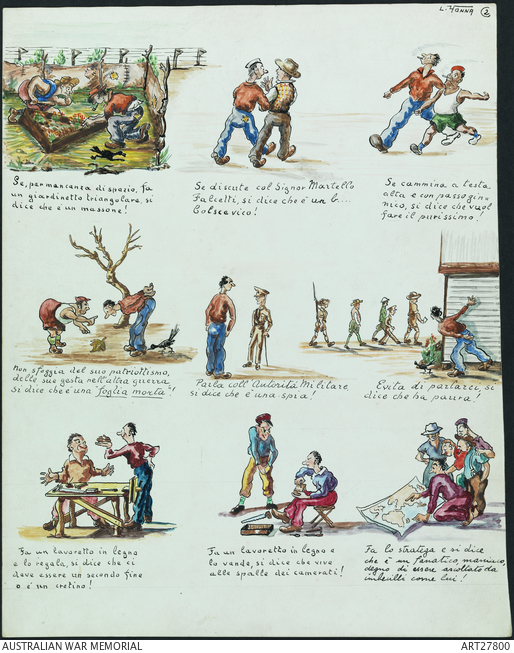 L. HANNA 2
Se, per mancanza di spazio, fa
un giardinetto triangolare, si
dice che è un massone!
Se discute col Signor Martello
Falcetti, si dice che è un b...
bolscevico!
Se cammina a testa
alta e con passo gin-
nico, si dice che vuol
fare il purissimo!
Non sfoggia del suo patriottismo,
delle sue gesta nell'altra guerra
si dice che è una "foglia morta"!
Parla coll'Autorità Militare
si dice che è una spia!
Evita di parlarci, si
dice che ha paura!
Fa un lavoretto in legno
e lo regala, si dice che ci
deve essere un secondo fine
o è un cretino!
Fa un lavoretto in legno e
lo vende, si dice che vive
alle spalle dei camerati!
Fa lo stratega e si dice
che è un fanatico, maniaco,
degno di essere ascoltato da
imbecilli come lui!
AUSTRALIAN WAR MEMORIAL
ART27800